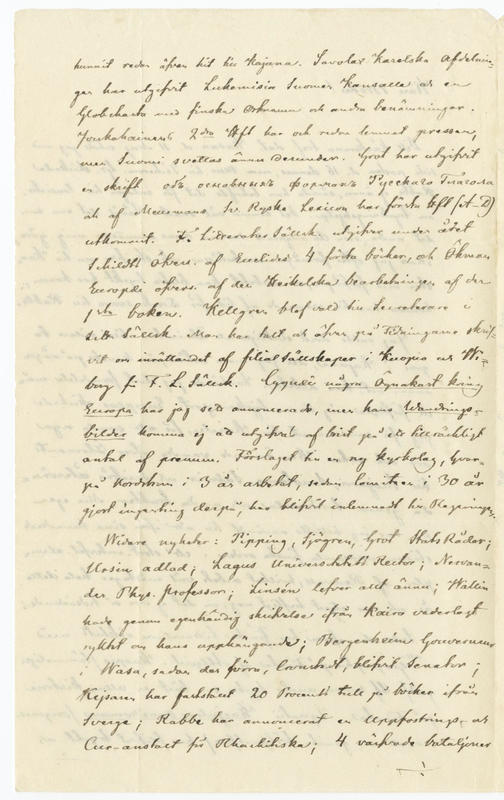 hunnit redan äfven hit till Kajana. Savolax Karelska Afdelnin-
gen har utgifvit Lukemisia Suomen Kansalle och en
Globkarta med finska Ortnamn och andra benämningar.
Joukahainens 2dra Häft har ock redan lemnat pressen,
men Suomi svettas ännu derunder. Grot har utgifvit
en skrift объ основныхъ формахъ Русскаго Глагола
och af Meurmans Sv. Ryska Lexicon har första häft (A–D)
utkommit. F. Litteratur Sällsk. utgifver under året
Schildts öfvers. af Euclides 4 första böcker, och Öhman
Europæi öfvers. af den Heikelska bearbetningen af den
1sta boken. Kellgren blef vald till Secreterare i
Litt. Sällsk. Man har talt och äfven på Tidningarne skrif-
vit om inrättandet af filialsällskaper i Kuopio och Wi-
borg för F. L. Sällsk. Cygnæi några Ögnakast kring
Europa har jag sett annoncerade, men hans Wandrings-
bilder komma ej att utgifvas af brist på ett tillräckligt
antal af prenum. Förslaget till en ny Kyrkolag, hvar-
på Nordström i 3 år arbetat, sedan komiteen i 30 år
gjort ingenting derpå, har blifvit inlemnadt till Regeringen.
Widare nyheter: Pipping, Sjögren, Grot StatsRådar;
Ursin adlad; Lagus Universitetets Rector; Nervan-
der Phys. Professor; Linsén lefver allt ännu; Wallin
hade genom egenhändig skrifvelse ifrån Kairo vederlagt
ryktet om hans upphängande; Bergenheim Gouverneur
i Wasa, sedan den förra, Cronstedt, blifvit Senator;
Kejsaren har fastställt 20 Procents tull på böcker ifrån
Sverge; Rabbe har annoncerat en Uppfostrings- och
Cur-anstalt för Rhachitiska; 4 värfvade bataljoner